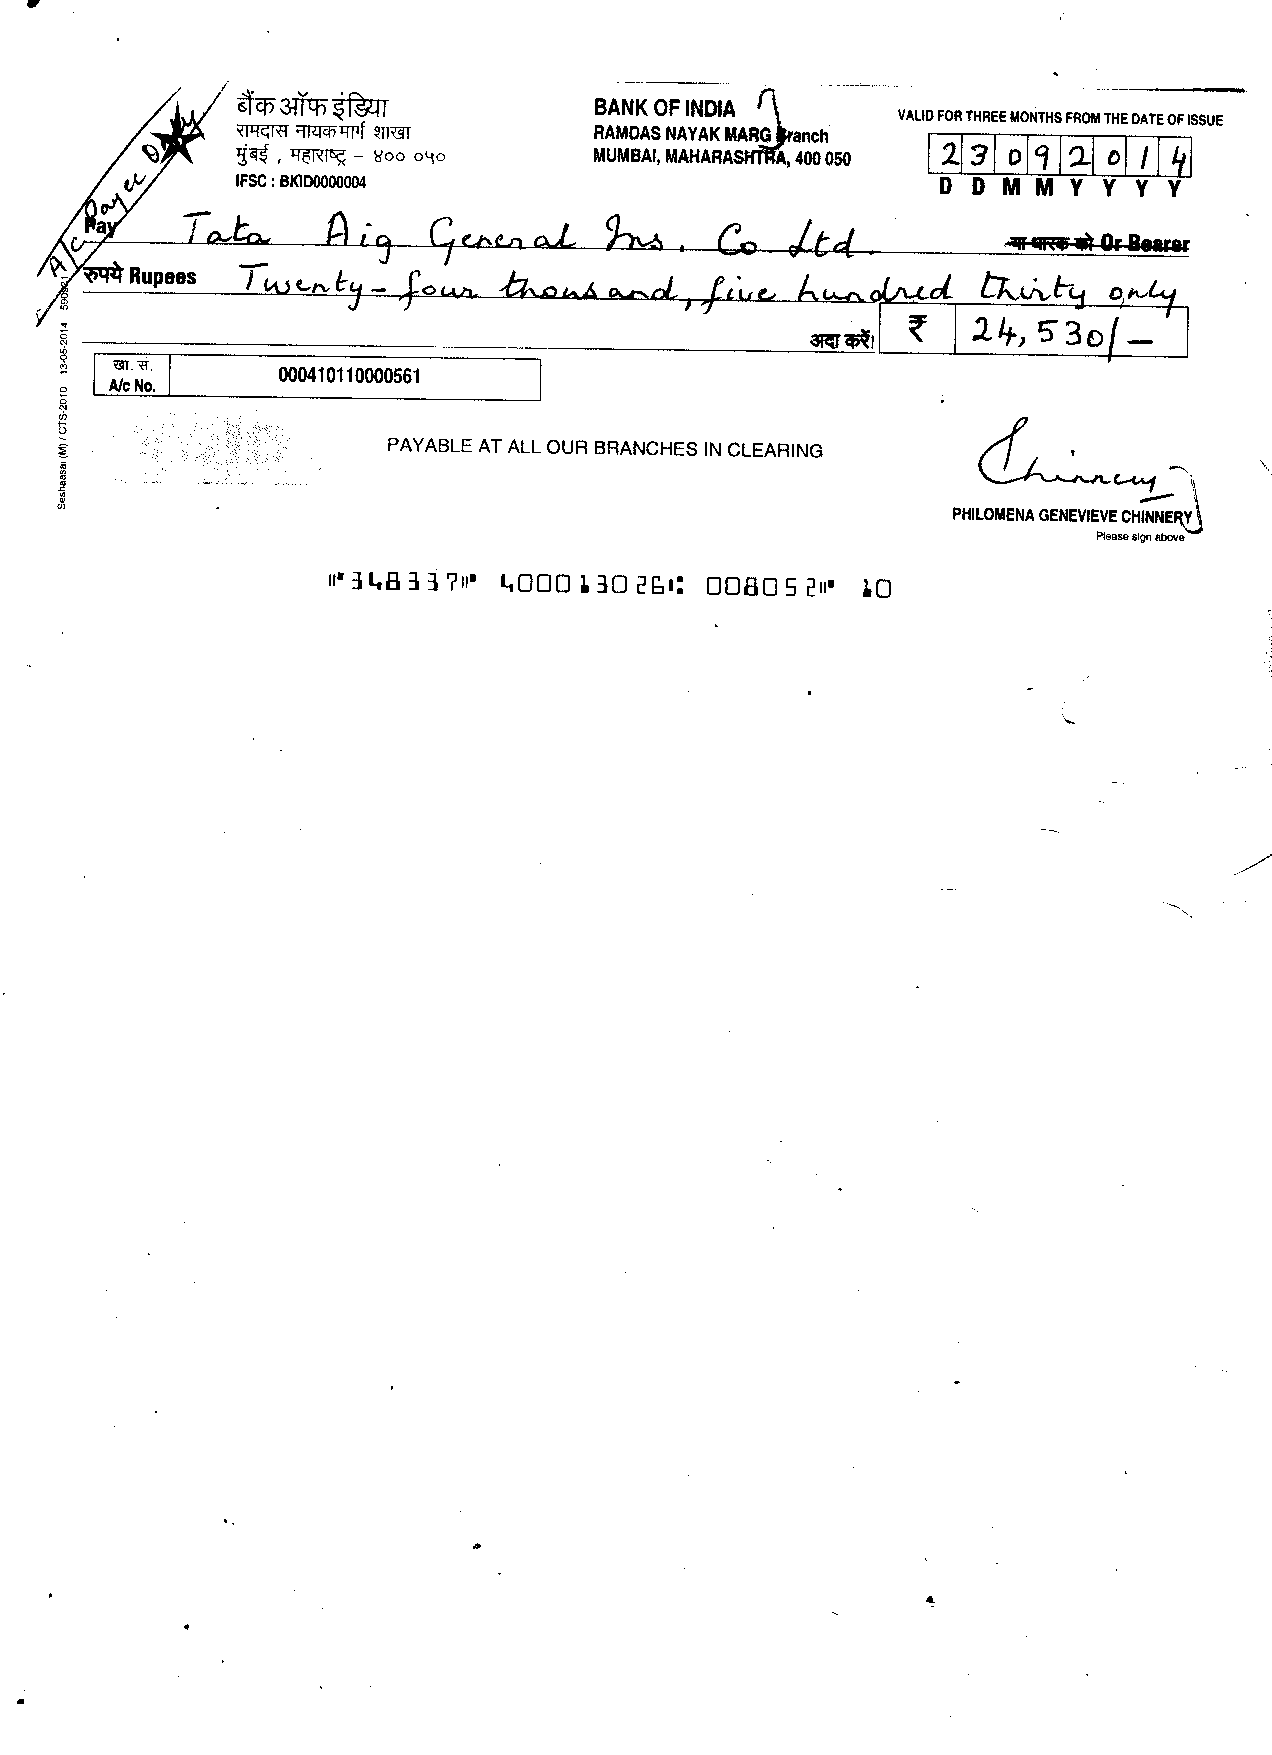 बैंक ऑफ इंडिया
रामदास नायक मार्ग शाखा
मुंबई , महाराष्ट्र - ४०० ०५०
IFSC : BKID0000004
BANK OF INDIA
RAMDAS NAYAK MARG Branch
MUMBAI, MAHARASHTRA, 400 050
VALID FOR THREE MONTHS FROM THE DATE OF ISSUE
2 3 0 9 2 0 1 4
D D M M Y Y Y Y
A/c Payee Only
Pay Tata Aig General Ins. Co Ltd. या धारक को Or Bearer
रुपये Rupees Twenty-four thousand, five hundred thirty only
अदा करें। ₹ 24,530/-
खा. सं.
A/c No. 000410110000561
Seshaasai (M) / CTS-2010 13-05-2014
PAYABLE AT ALL OUR BRANCHES IN CLEARING
Chinnery
PHILOMENA GENEVIEVE CHINNERY
Please sign above
⑈348337⑈ 400013026⑆ 008052⑈ 10